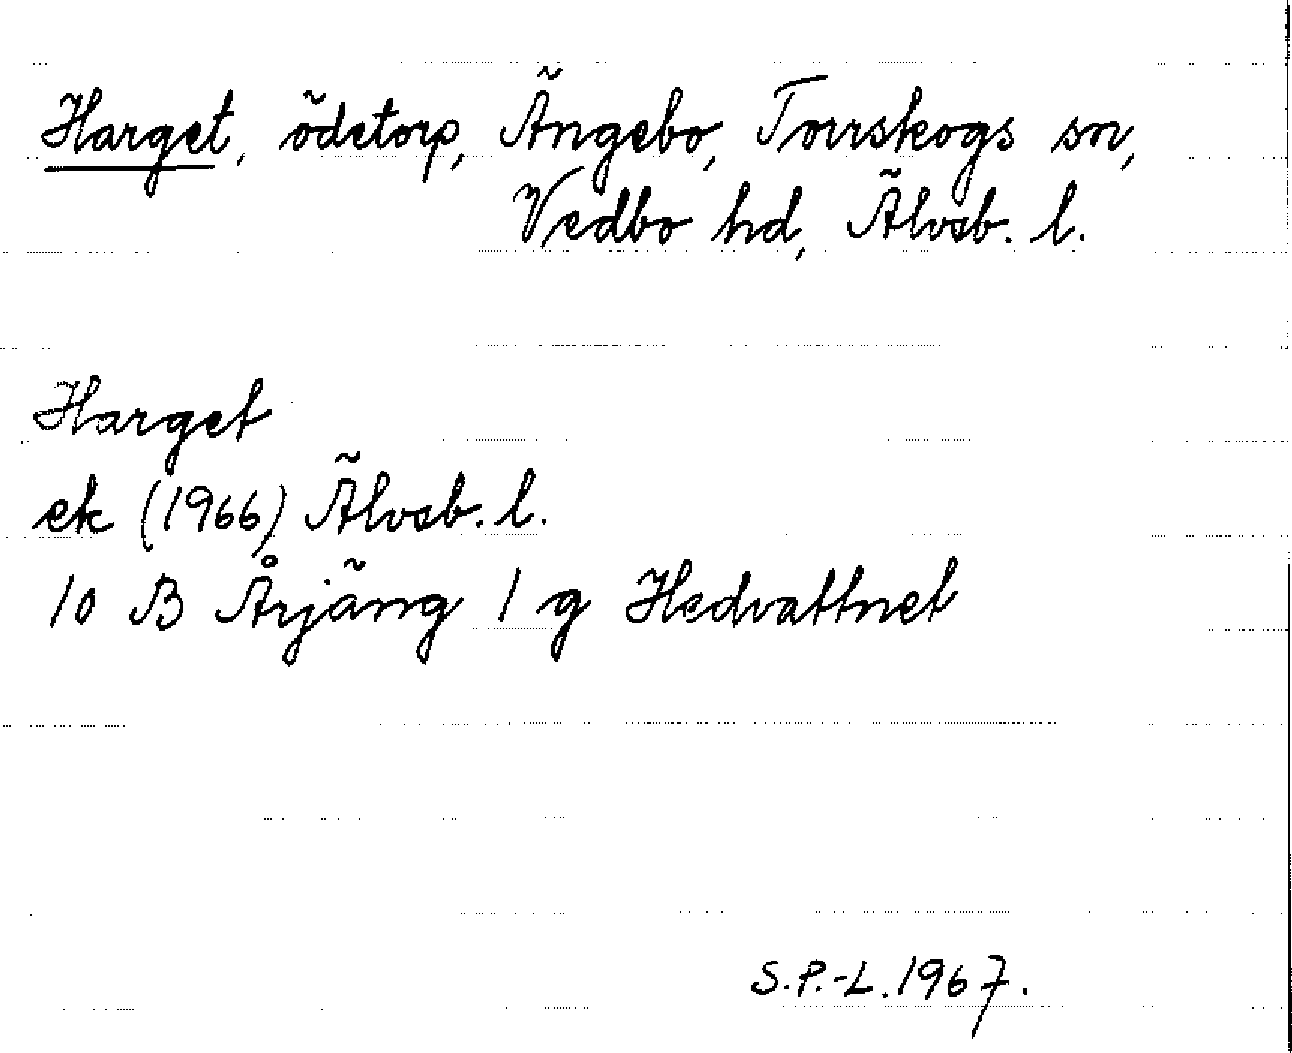 Harget, ödetorp, Ängebo, Torrskogs sn,
Vedbo hd, Älvsb. l.
Harget
ek (1966) Älvsb. l.
10 B Årjäng 1 g Hedvattnet
S.P.-L. 1967.